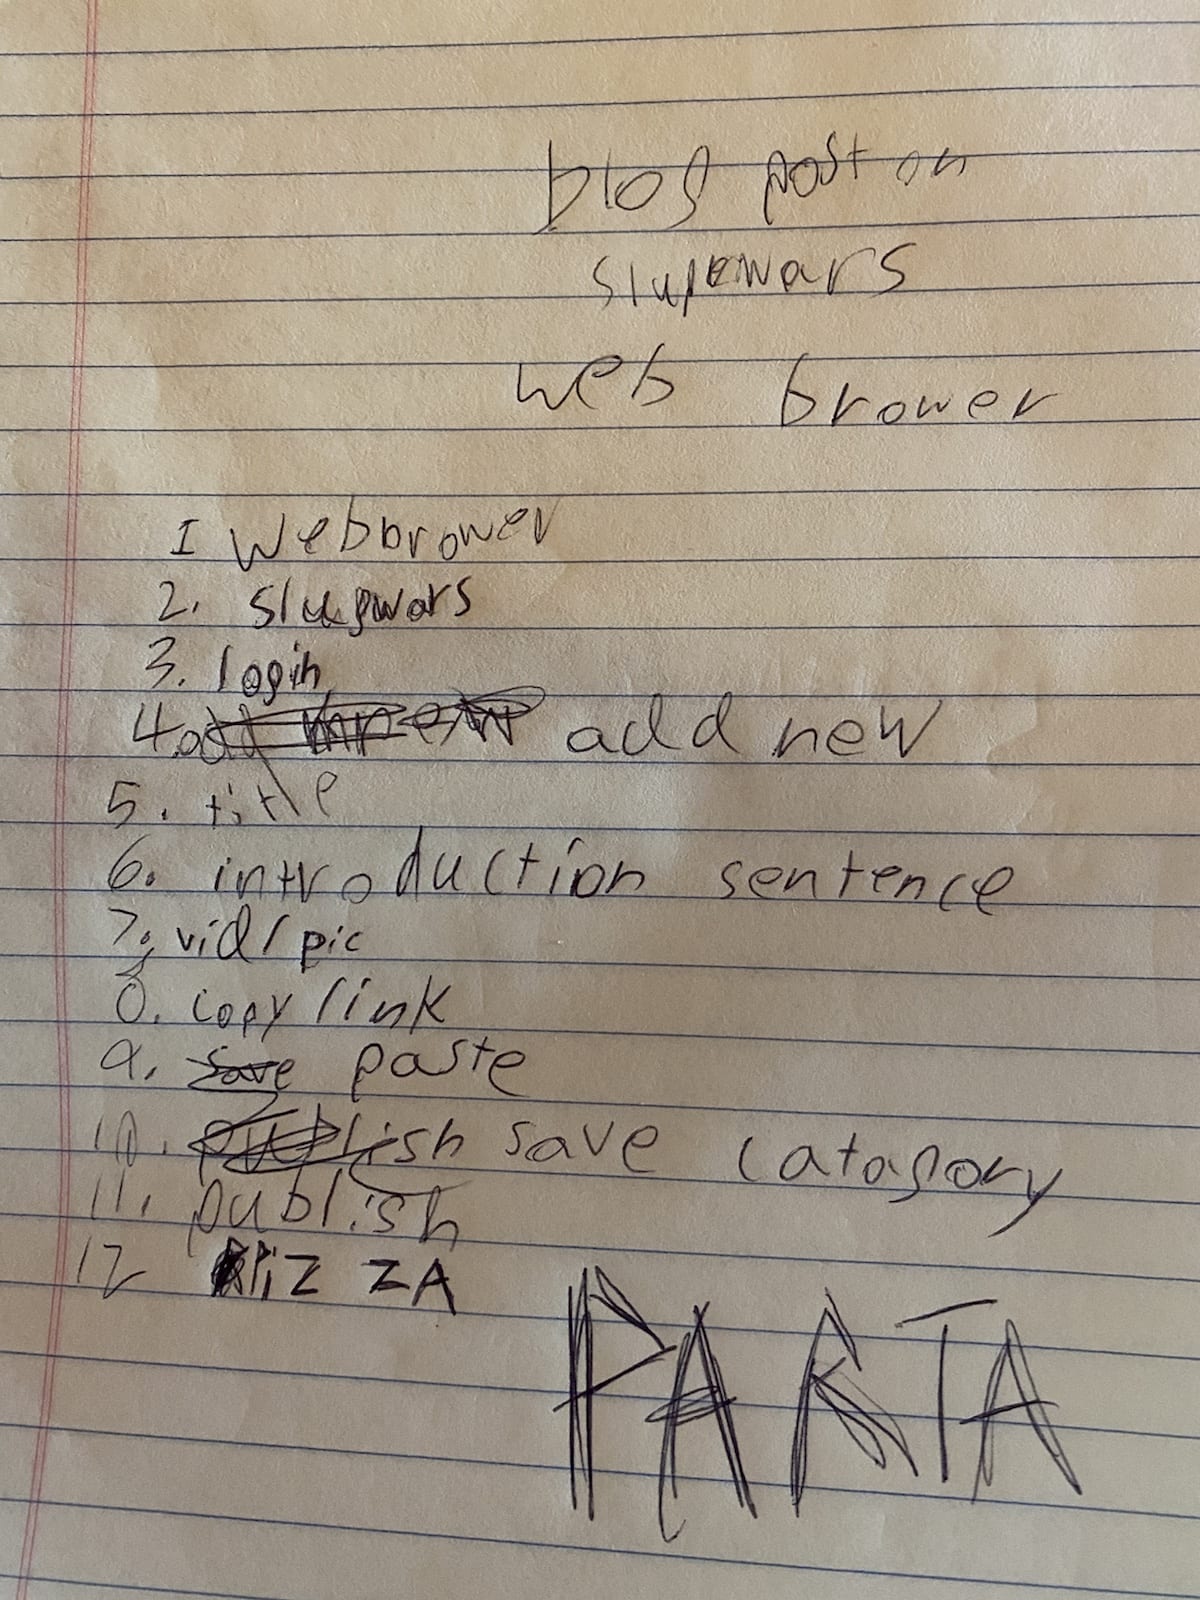 blog post on
slugwars
web brower
1 Webbrower
2. slugwars
3. login
4. add new
5. title
6. introduction sentence
7. vid/pic
8. copy link
9. save paste
10. publish save catagory
11. publish
12 PiZ ZA
PARTA